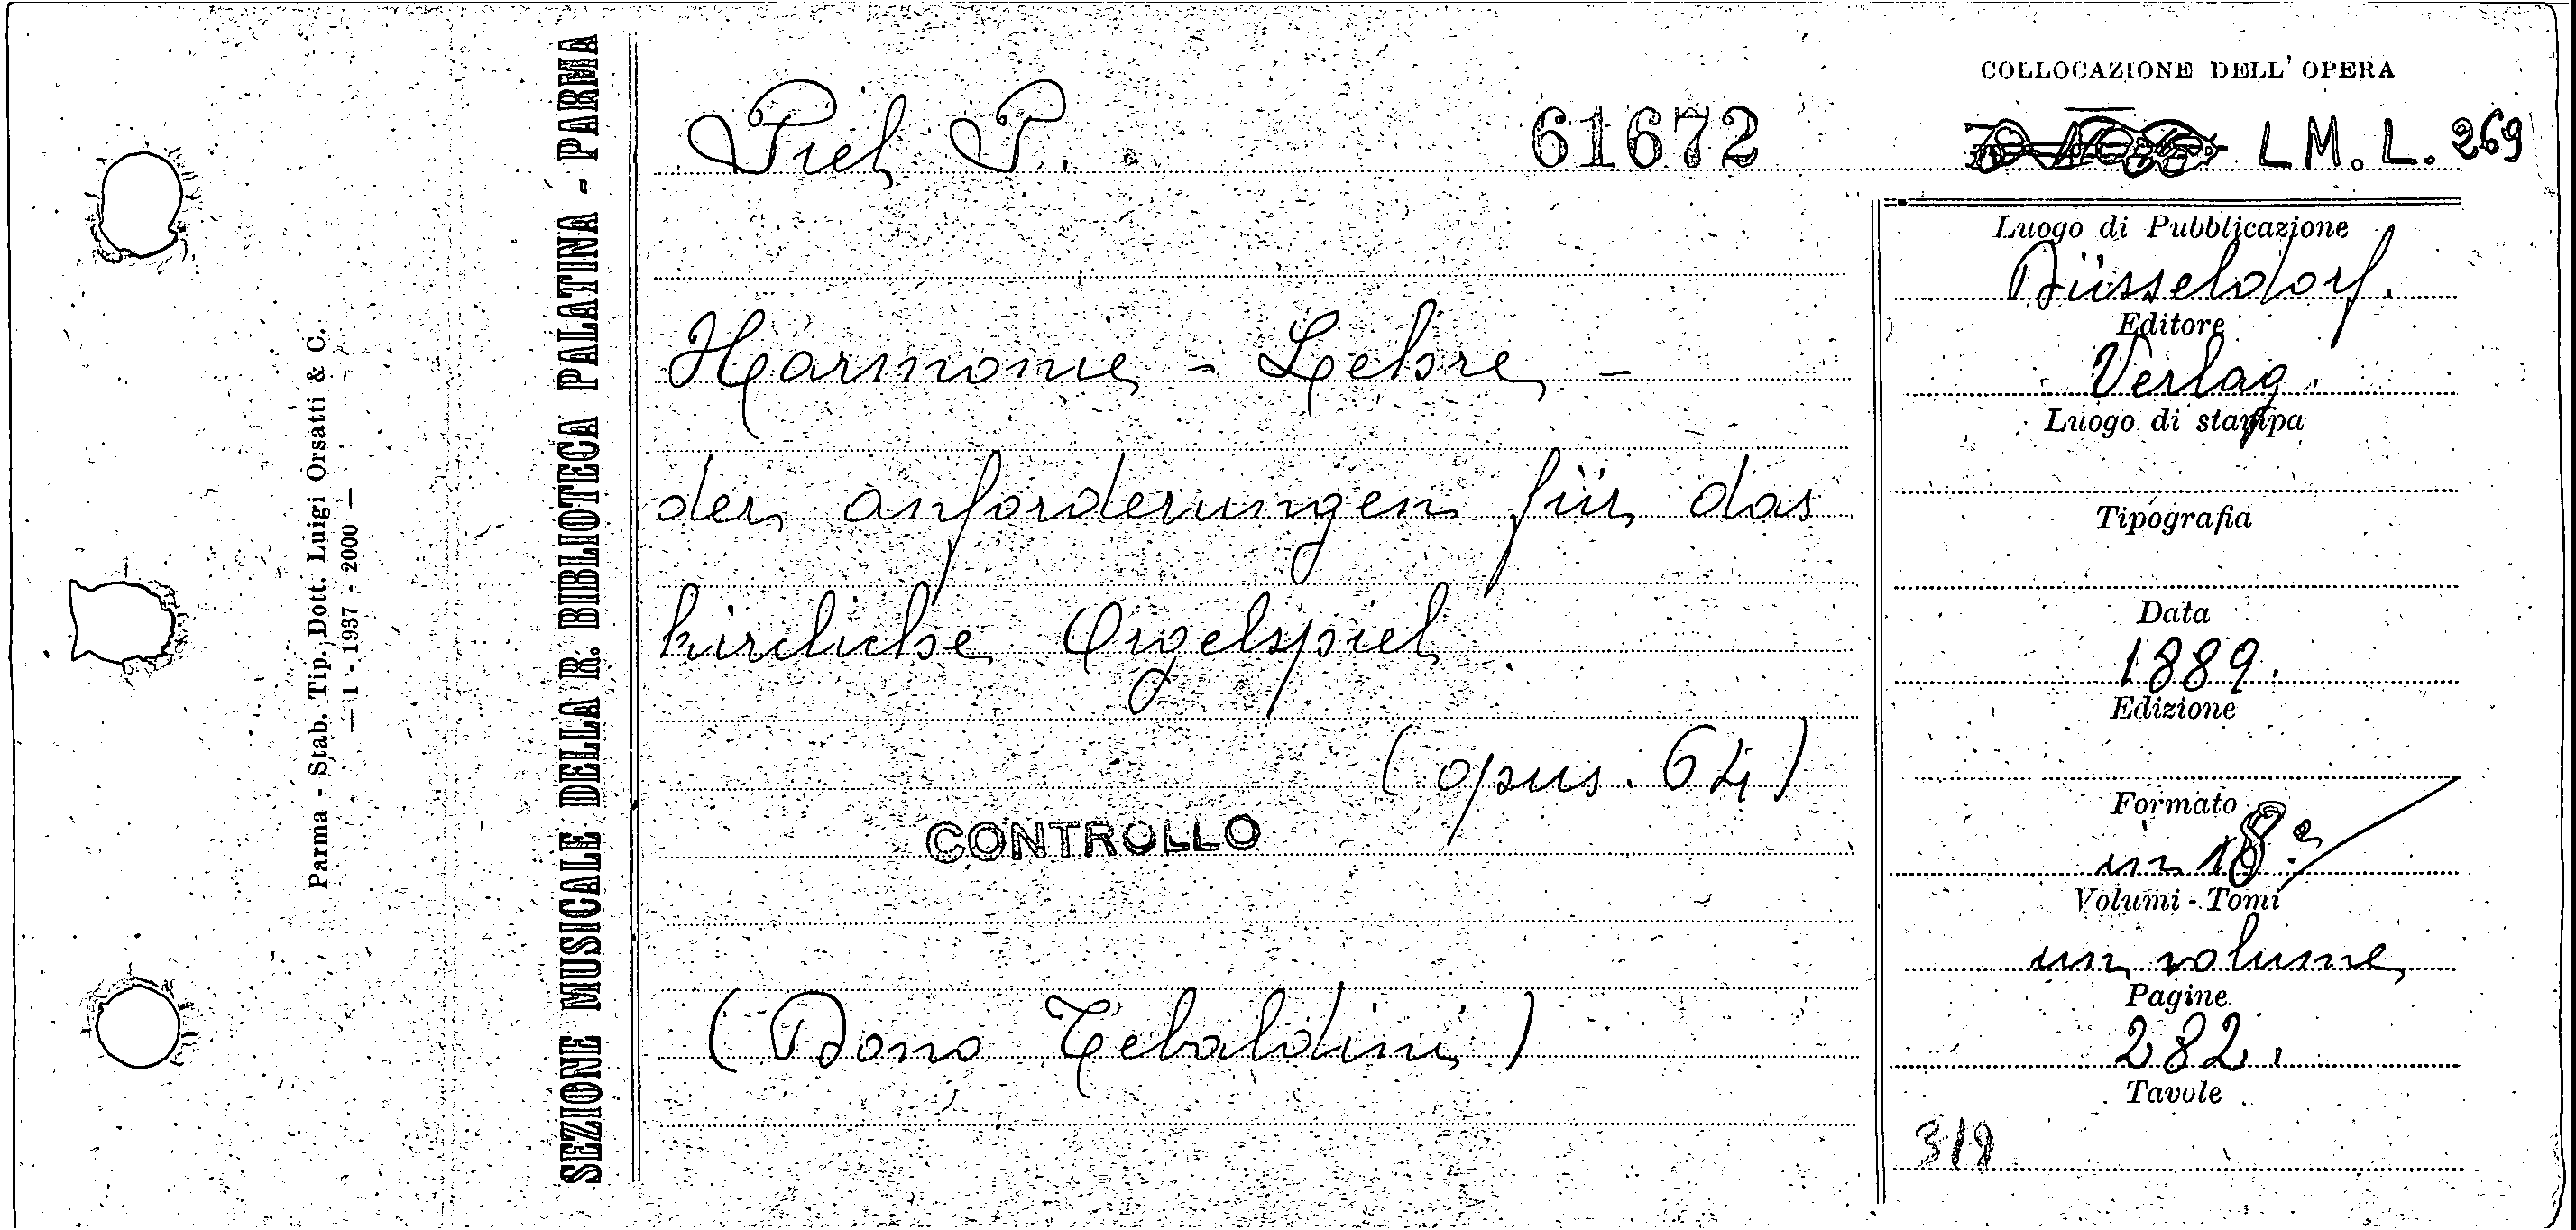 Parma - Stab. Tip. Dott. Luigi Orsatti & C.
— 1 - 1937 - 2000 —
SEZIONE MUSICALE DELLA R. BIBLIOTECA PALATINA - PARMA
Piel P.
61672
Harmonie - Lehre -
der anforderungen für das
kircliche Orgelspiel
(opus. 64)
CONTROLLO
(Dono Tebaldini)
COLLOCAZIONE DELL' OPERA
L M. L. 269
Luogo di Pubblicazione
Düsseldorf.
Editore
Verlag.
Luogo di stampa
Tipografia
Data
1889.
Edizione
Formato
in 18º
Volumi - Tomi
un volume
Pagine
282.
Tavole
319